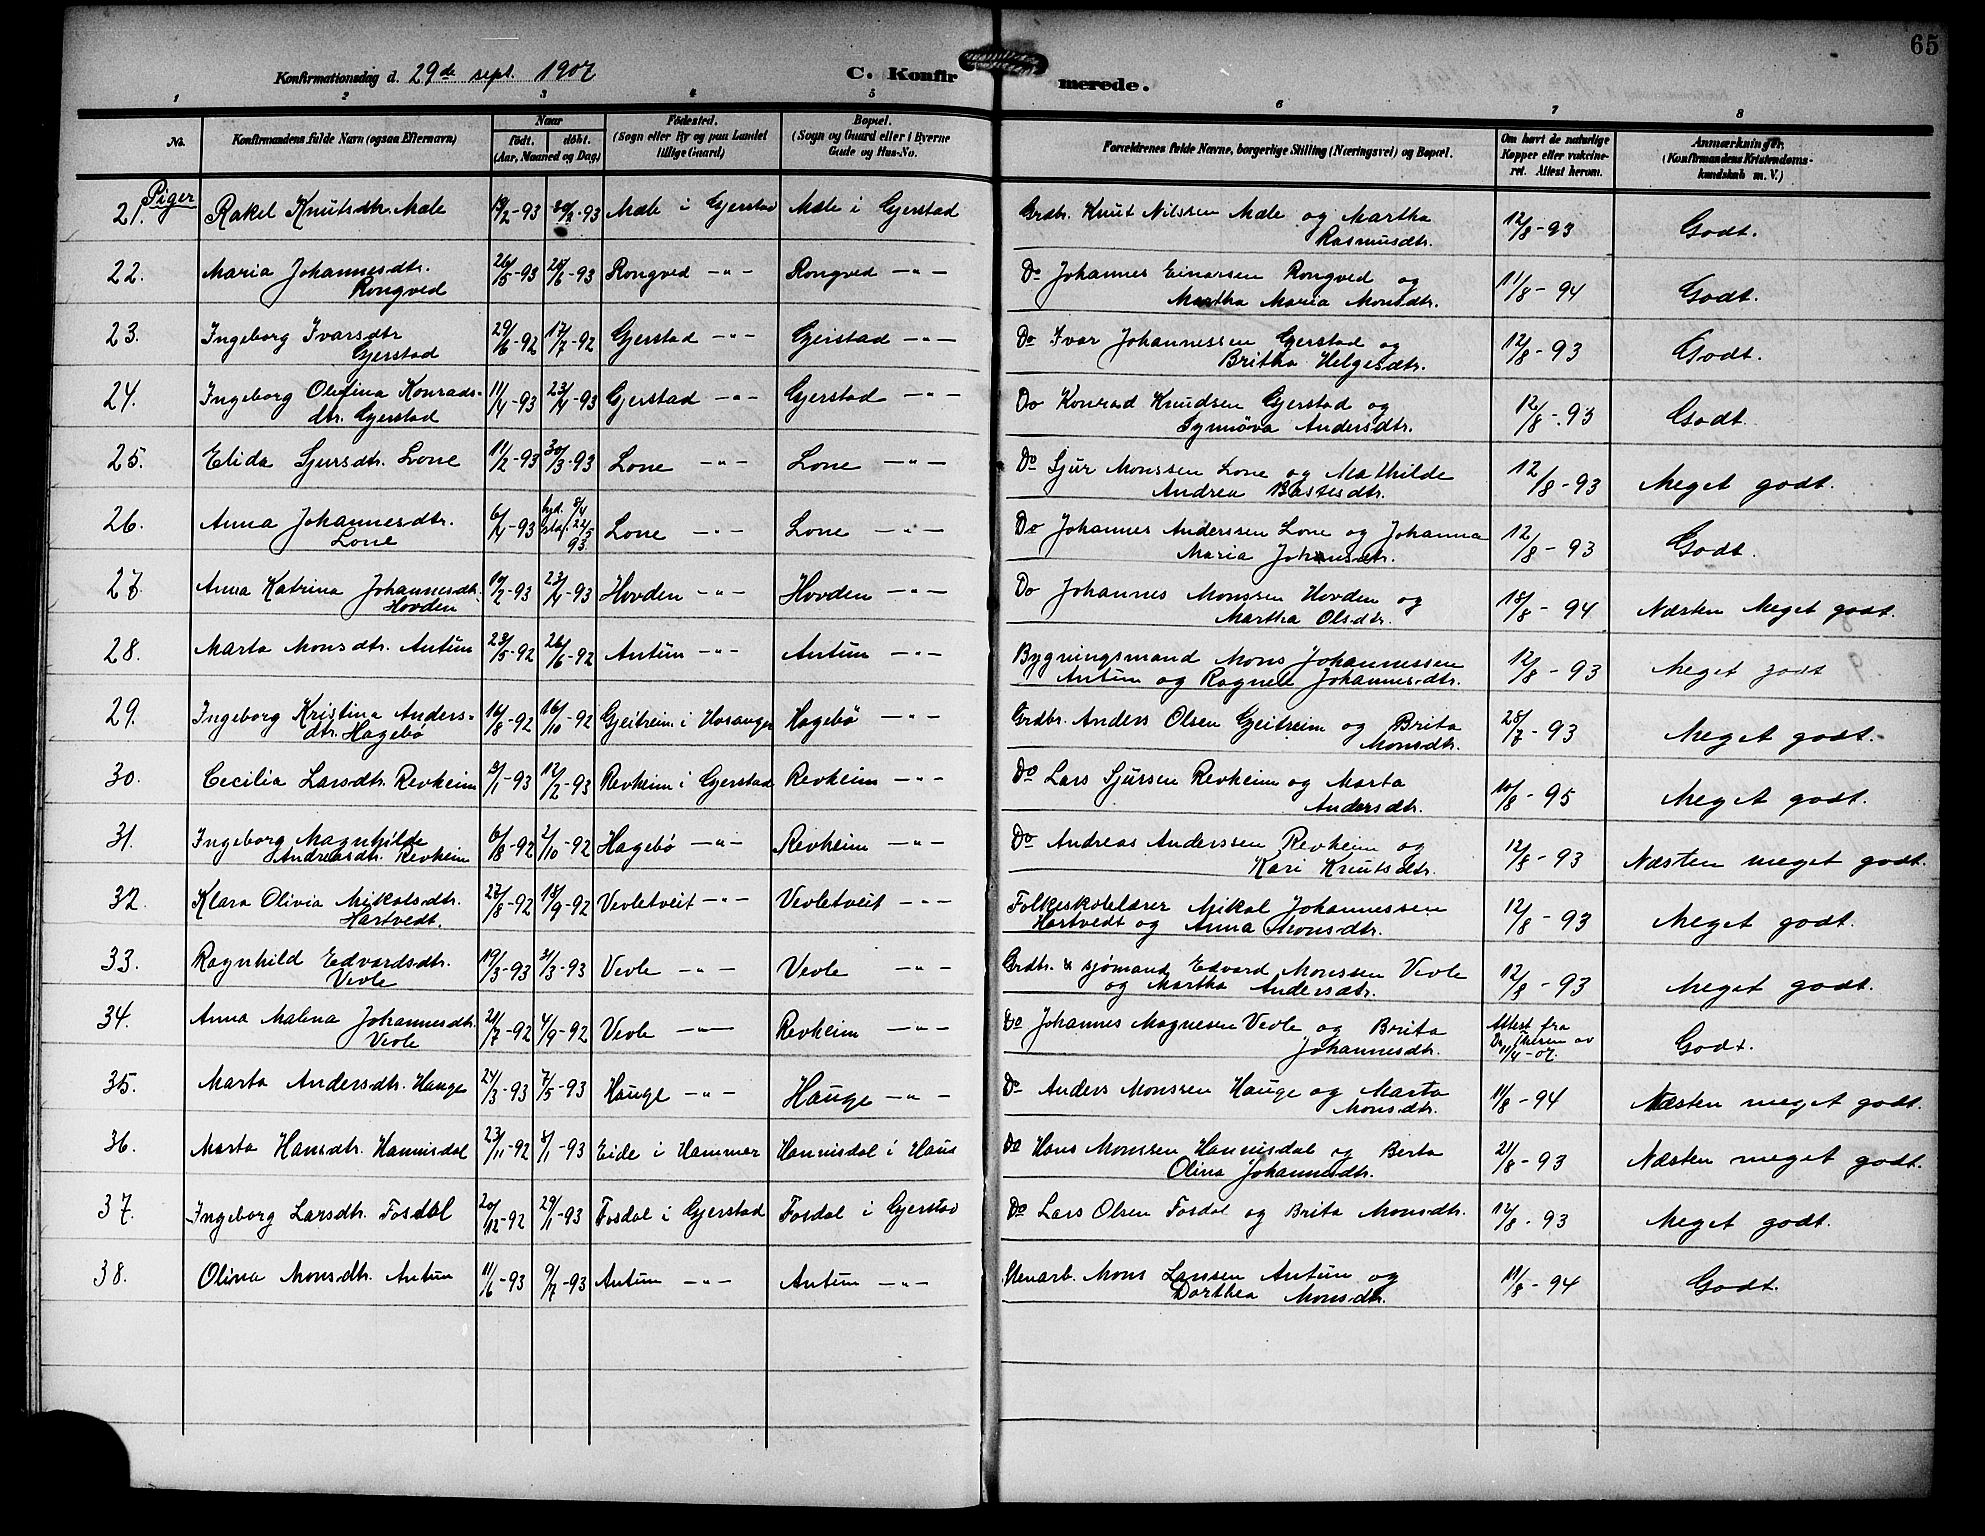 65
Konfirmationsdag d. 29de sept. 1907
C. Konfirmerede.
1 2 3 4 5 6 7 8
No. Konfirmandens fulde Navn (ogsaa Efternavn) Naar født. døbt. (Aar, Maaned og Dag) Fødested. (Sogn eller By og paa Landet tillige Gaard) Bopæl. (Sogn og Gaard eller i Byerne Gade og Hus-No. Forældrenes fulde Navne, borgerlige Stilling (Næringsvei) og Bopæl. Om havt de naturlige Kopper eller vakcineret. Attest herom. Anmærkninger. (Konfirmandens Kristendomskundskab m. V.)
Piger
21. Rakel Knutsdtr. Mæle 19/2-93 30/3-93 Mæle i Gjerstad Mæle i Gjerstad Grdbr. Knut Nilssen Mæle og Martha Rasmusdtr. 12/8-93 Godt.
22. Maria Johannesdtr. Rongved 26/5-93 25/6-93 Rongved -"- Rongved -"- Do Johannes Einarsen Rongved og Martha Maria Monsdtr. 11/8-94 Godt.
23. Ingeborg Ivarsdtr Gjerstad 29/6-92 17/7-92 Gjerstad -"- Gjerstad -"- Do Ivar Johannessen Gjerstad og Britha Helgesdtr. 12/8-93 Godt.
24. Ingeborg Olufina Konradsdtr. Gjerstad 11/4-93 23/4-93 Gjerstad -"- Gjerstad -"- Do Konrad Knudsen Gjerstad og Synnøva Andersdtr. 12/8-93 Godt.
25. Elida Sjursdtr. Lone 11/2-93 30/3-93 Lone -"- Lone -"- Do Sjur Monssen Lone og Mathilde Andrea Bastesdtr. 12/8-93 Meget godt.
26. Anna Johannesdtr. Lone 6/4-93 hjd. 8/4 stad. 22/5 93. Lone -"- Lone -"- Do Johannes Anderssen Lone og Johanna Maria Johansdtr. 12/8-93 Godt.
27. Anna Katrina Johannesdtr. Hovden 10/2-93 23/4-93 Hovden -"- Hovden -"- Do Johannes Monssen Hovden og Martha Olsdtr. 18/8-94 Næsten Meget godt.
28. Marta Monsdtr. Antun 23/5-92 26/6-92 Antun -"- Antun -"- Bygningsmand Mons Johannessen Antun og Ragnea Johannesdtr. 12/8-93 Meget godt
29. Ingeborg Kristina Andersdtr. Hagebø 16/8-92 16/10-92 Gjeitreim i Hosanger Hagebø -"- Grdbr. Anders Olsen Gjeitreim og Brita Monsdtr. 25/7-93 Meget godt.
30. Cecilia Larsdtr. Revheim 2/1-93 12/2-93 Revheim i Gjerstad Revheim -"- Do Lars Sjursen Revheim og Marta Andersdtr. 10/8-95 Meget godt.
31. Ingeborg Magnhilde Andreasdtr. Revheim 6/8-92 2/10-92 Hagebø -"- Revheim -"- Do Andreas Anderssen Revheim og Kari Knutsdtr. 12/8-93 Næsten meget godt.
32. Klara Olivia Mikalsdtr. Hartvedt. 27/8-92 18/9-92 Vevletveit -"- Vevletveit -"- Folkeskolelærer Mikal Johannessen Hartvedt og Anna Monsdtr. 12/8-93 Meget godt.
33. Ragnhild Edvardsdtr. Vevle 19/3-93 31/3-93 Vevle -"- Vevle -"- Grdbr. & sjømand Edvard Monssen Vevle og Martha Andersdtr. 12/8-93 Meget godt.
34. Anna Malena Johannesdtr. Vevle 21/7-92 4/9-92 Vevle -"- Revheim -"- Do Johannes Magnesen Vevle og Brita Johannesdtr. Attest fra Dr. av 11/4-07. Godt.
35. Marta Andersdtr. Hauge 24/3-93 7/5-93 Hauge -"- Hauge -"- Do Anders Monssen Hauge og Marta Monsdtr. 11/8-94 Næsten meget godt.
36. Marta Hansdtr. Hannisdal 23/11-92 8/1-93 Eide i Hammer Hannisdal i Haus Do Hans Monssen Hannisdal og Berta Olina Johannesdtr. 21/8-93 Næsten meget godt.
37. Ingeborg Larsdtr. Fosdal 20/12-92 29/1-93 Fosdal i Gjerstad Fosdal i Gjerstad Do Lars Olsen Fosdal og Brita Monsdtr. 12/8-93 Meget godt.
38. Olina Monsdtr. Antun 11/6-93 9/7-93 Antun -"- Antun -"- Stenarb. Mons Larssen Antun og Dorthea Monsdtr. 11/8-94 Godt.